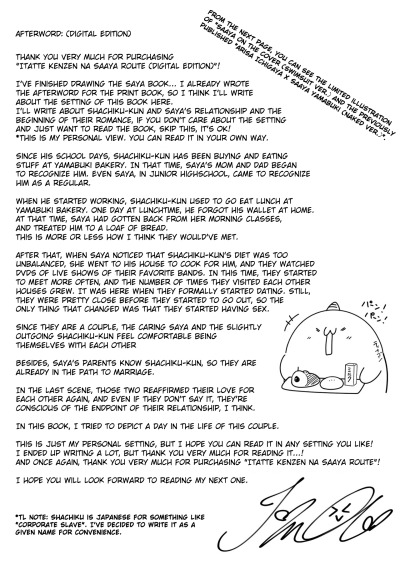 AFTERWORD: (DIGITAL EDITION)
FROM THE NEXT PAGE, YOU CAN SEE THE LIMITED ILLUSTRATION
OF "SAAYA ON THE COVER (SWIMSUIT VER.) AND THE PREVIOUSLY
PUBLISHED "ARISA ICHIGAYA X SAAYA YAMABUKI (NAKED VER.)".
THANK YOU VERY MUCH FOR PURCHASING
"ITATTE KENZEN NA SAAYA ROUTE (DIGITAL EDITION)"!
I'VE FINISHED DRAWING THE SAYA BOOK... I ALREADY WROTE
THE AFTERWORD FOR THE PRINT BOOK, SO I THINK I'LL WRITE
ABOUT THE SETTING OF THIS BOOK HERE.
I'LL WRITE ABOUT SHACHIKU-KUN AND SAYA'S RELATIONSHIP AND THE
BEGINNING OF THEIR ROMANCE, IF YOU DON'T CARE ABOUT THE SETTING
AND JUST WANT TO READ THE BOOK, SKIP THIS, IT'S OK!
*THIS IS MY PERSONAL VIEW. YOU CAN READ IT IN YOUR OWN WAY.
SINCE HIS SCHOOL DAYS, SHACHIKU-KUN HAS BEEN BUYING AND EATING
STUFF AT YAMABUKI BAKERY. IN THAT TIME, SAYA'S MOM AND DAD BEGAN
TO RECOGNIZE HIM. EVEN SAYA, IN JUNIOR HIGHSCHOOL, CAME TO RECOGNIZE
HIM AS A REGULAR.
WHEN HE STARTED WORKING, SHACHIKU-KUN USED TO GO EAT LUNCH AT
YAMABUKI BAKERY. ONE DAY AT LUNCHTIME, HE FORGOT HIS WALLET AT HOME.
AT THAT TIME, SAYA HAD GOTTEN BACK FROM HER MORNING CLASSES,
AND TREATED HIM TO A LOAF OF BREAD.
THIS IS MORE OR LESS HOW I THINK THEY WOULD'VE MET.
AFTER THAT, WHEN SAYA NOTICED THAT SHACHIKU-KUN'S DIET WAS TOO
UNBALANCED, SHE WENT TO HIS HOUSE TO COOK FOR HIM, AND THEY WATCHED
DVDS OF LIVE SHOWS OF THEIR FAVORITE BANDS. IN THIS TIME, THEY STARTED
TO MEET MORE OFTEN, AND THE NUMBER OF TIMES THEY VISITED EACH OTHER
HOUSES GREW. IT WAS HERE WHEN THEY FORMALLY STARTED DATING. STILL,
THEY WERE PRETTY CLOSE BEFORE THEY STARTED TO GO OUT, SO THE
ONLY THING THAT CHANGED WAS THAT THEY STARTED HAVING SEX.
SINCE THEY ARE A COUPLE, THE CARING SAYA AND THE SLIGHTLY
OUTGOING SHACHIKU-KUN FEEL COMFORTABLE BEING
THEMSELVES WITH EACH OTHER
BESIDES, SAYA'S PARENTS KNOW SHACHIKU-KUN, SO THEY ARE
ALREADY IN THE PATH TO MARRIAGE.
IN THE LAST SCENE, THOSE TWO REAFFIRMED THEIR LOVE FOR
EACH OTHER AGAIN, AND EVEN IF THEY DON'T SAY IT, THEY'RE
CONSCIOUS OF THE ENDPOINT OF THEIR RELATIONSHIP, I THINK.
IN THIS BOOK, I TRIED TO DEPICT A DAY IN THE LIFE OF THIS COUPLE.
THIS IS JUST MY PERSONAL SETTING, BUT I HOPE YOU CAN READ IT IN ANY SETTING YOU LIKE!
I ENDED UP WRITING A LOT, BUT THANK YOU VERY MUCH FOR READING IT...!
AND ONCE AGAIN, THANK YOU VERY MUCH FOR PURCHASING "ITATTE KENZEN NA SAAYA ROUTE"!
I HOPE YOU WILL LOOK FORWARD TO READING MY NEXT ONE.
*TL NOTE: SHACHIKU IS JAPANESE FOR SOMETHING LIKE
"CORPORATE SLAVE". I'VE DECIDED TO WRITE IT AS A
GIVEN NAME FOR CONVENIENCE.